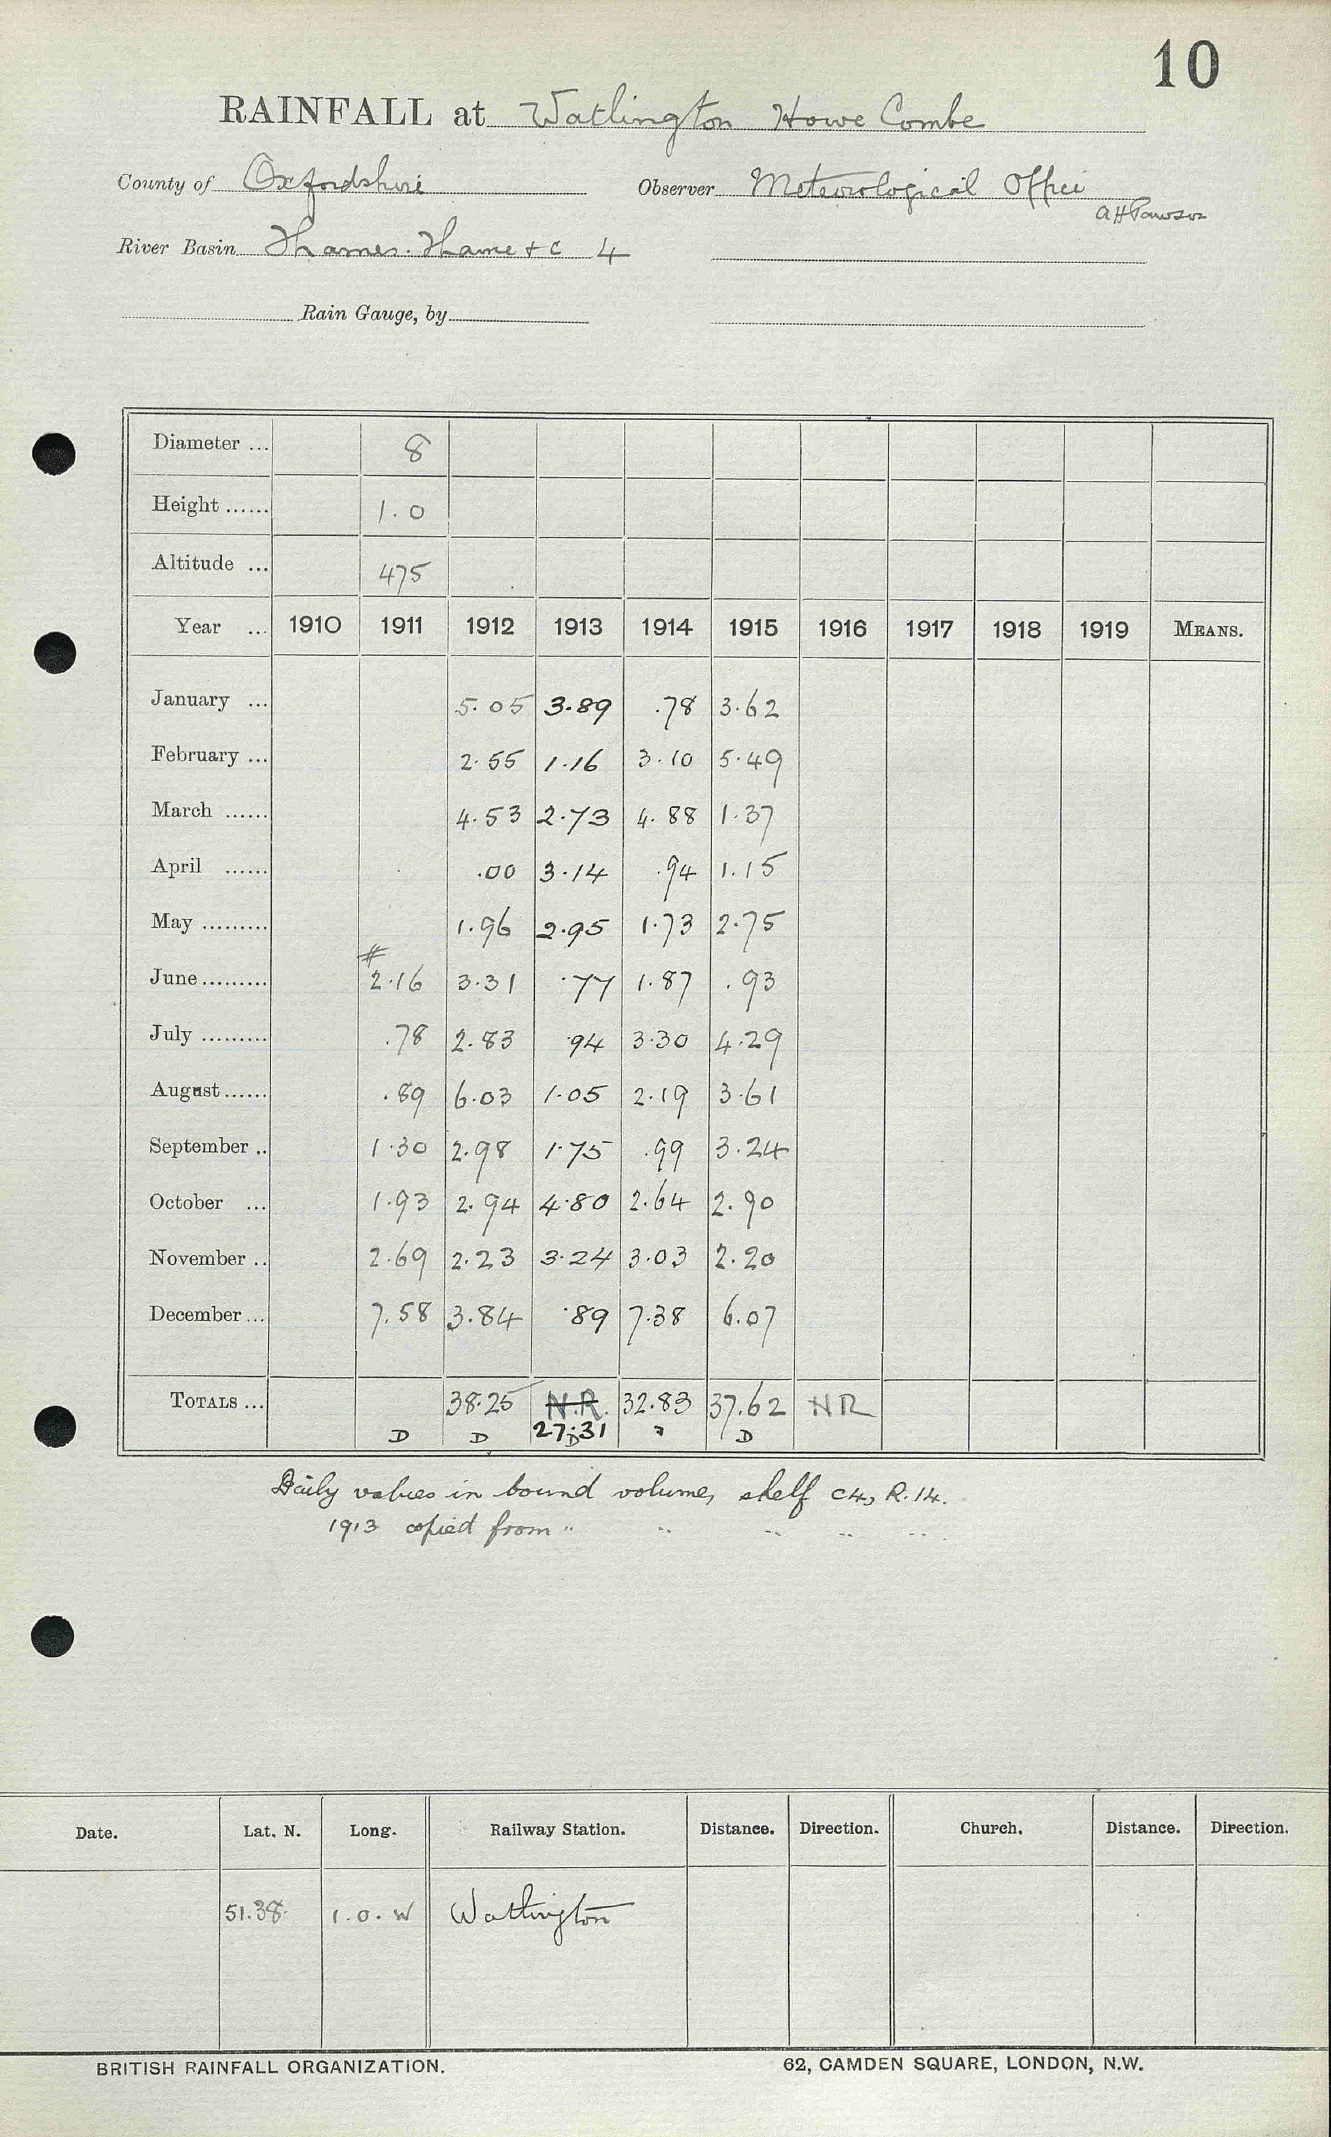 10
RAINFALL at Watlington Howe Combe
County of Oxfordshire Observer Meteorological Office
A H Pawson
River Basin Thames. Thame & c 4
Rain Gauge, by
Diameter ... 8
Height ...... 1.0
Altitude ... 475
Year ... 1910 1911 1912 1913 1914 1915 1916 1917 1918 1919 MEANS.
January ... 5.05 3.89 .78 3.62
February ... 2.55 1.16 3.10 5.49
March ...... 4.53 2.73 4.88 1.37
April ...... .00 3.14 .94 1.15
May ......... 1.96 2.95 1.73 2.75
#
June......... 2.16 3.31 .77 1.87 .93
July ......... .78 2.83 .94 3.30 4.29
August...... .89 6.03 1.05 2.19 3.61
September .. 1.30 2.98 1.75 .99 3.24
October ... 1.93 2.94 4.80 2.64 2.90
November .. 2.69 2.23 3.24 3.03 2.20
December... 7.58 3.84 .89 7.38 6.07
TOTALS ... 38.25 N.R. 32.83 37.62 NR
27.31
D D D D
Daily values in bound volume, shelf C4, R.14.
1913 copied from " " " " "
Date. Lat. N. Long. Railway Station. Distance. Direction. Church. Distance. Direction.
51.38 1.0.W Watlington
BRITISH RAINFALL ORGANIZATION. 62, CAMDEN SQUARE, LONDON, N.W.